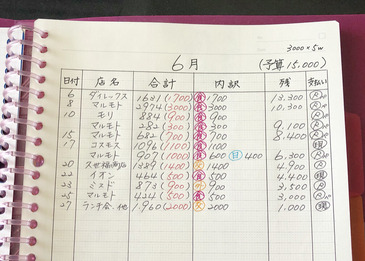 3000×5w
6月 (予算15,000)
日付 店名 合計 内訳 残 支払い
6 ダイレックス 1631(1700) 食1700 13,300
8 マルモト 2974(3000) 食3000 10,300
10 モリ 884(900) 食900
マルモト 282(300) 食300 9,100
15 マルモト 682(700) 食700 8,400
17 コスモス 1096(1100) 食1100 現
マルモト 907(1000) 食600 日400 6,300
20 1389(1400) 1400 4,900
22 イオン 464(500) 食500 4,400 現
23 ミスド 873(900) 900 3,500
25 マルモト 424(500) 食500 3,000
27 ランチ会、他 1,960(2000) 2000 1,000 現